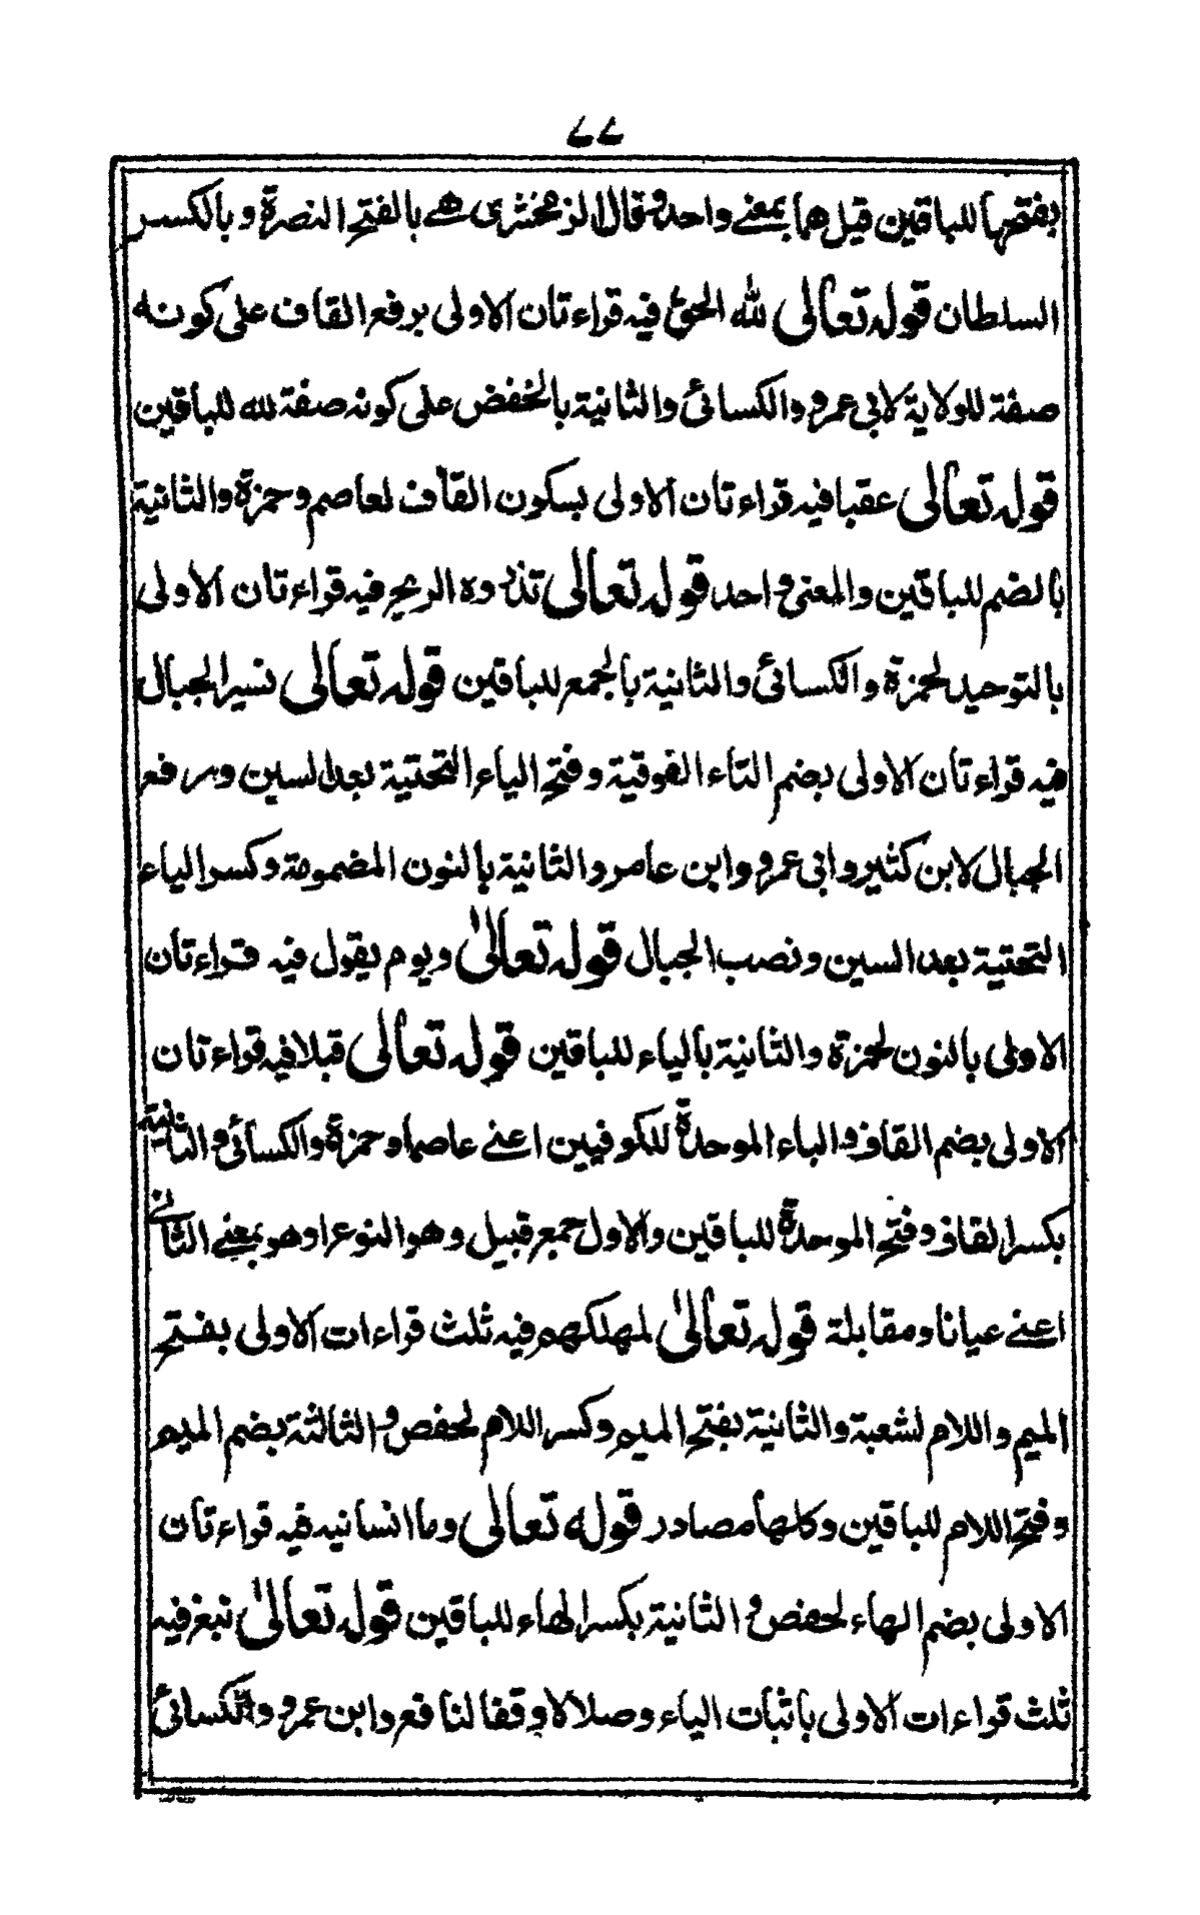 ٧٧
بفتحها للباقين قيل هما بمعنے واحد وقال الزمخشرى هے بالفتح النصرة وبالكسر
السلطان قوله تعالى لله الحق فيه قراءتان الاولى برفع القاف على كونه
صفة للولاية لابى عمرو والكسائى والثانية بالخفض على كونه صفة لله للباقين
قوله تعالى عقبا فيه قراءتان الاولى بسكون القاف لعاصم وحمزة والثانية
بالضم للباقين والمعنى واحد قوله تعالى تذروه الريح فيه قراءتان الاولى
بالتوحيد لحمزة والكسائى والثانية بالجمع للباقين قوله تعالى نسير الجبال
فيه قراءتان الاولى بضم التاء الفوقية وفتح الياء التحتية بعد السين ورفع
الجبال لابن كثير وابى عمرو وابن عامر والثانية بالنون المضمومة وكسر الياء
التحتية بعد السين ونصب الجبال قوله تعالىٰ ويوم يقول فيه قراءتان
الاولى بالنون لحمزة والثانية بالياء للباقين قوله تعالى قبلا فيه قراءتان
الاولى بضم القاف والباء الموحدة للكوفيين اعنے عاصما وحمزة والكسائى والثانية
بكسر القاف وفتح الموحدة للباقين والاول جمع قبيل وهو النوع او هو بمعنے الثانے
اعنے عيانا ومقابلة قوله تعالىٰ لمهلكهم فيه ثلث قراءات الاولى بفتح
الميم واللام لشعبة والثانية بفتح الميم وكسر اللام لحفص والثالثة بضم الميم
وفتح اللام للباقين وكلها مصادر قوله تعالى وما انسانيه فيه قراءتان
الاولى بضم الهاء لحفص والثانية بكسر الهاء للباقين قوله تعالىٰ نبغ فيه
ثلث قراءات الاولى باثبات الياء وصلا لا وقفا لنافع وابن عمرو والكسائى